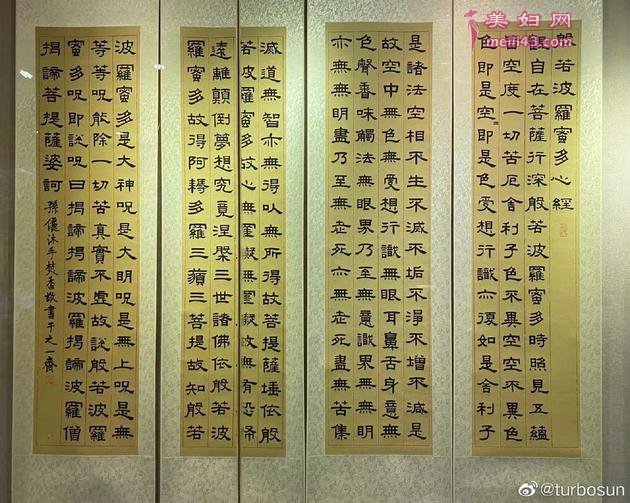 般若波羅蜜多心經
觀自在菩薩行深般若波羅蜜多時照見五蘊
皆空度一切苦厄舍利子色不異空空不異色
色即是空〻即是色受想行識亦復如是舍利子
是諸法空相不生不滅不垢不淨不增不減是
故空中無色無受想行識無眼耳鼻舌身意無
色聲香味觸法無眼界乃至無意識界無無明
亦無無明盡乃至無老死亦無老死盡無苦集
滅道無智亦無得以無所得故菩提薩埵依般
若波羅蜜多故心無罣礙無罣礙故無有恐怖
遠離顛倒夢想究竟涅槃三世諸佛依般若波
羅蜜多故得阿耨多羅三藐三菩提故知般若
波羅蜜多是大神咒是大明咒是無上咒是無
等等咒能除一切苦真實不虛故說般若波羅
蜜多咒即說咒曰揭諦揭諦波羅揭諦波羅僧
揭諦菩提薩婆訶 孫儷沐手焚香敬書于之一齋
美妇网
meifu43.com
@turbosun